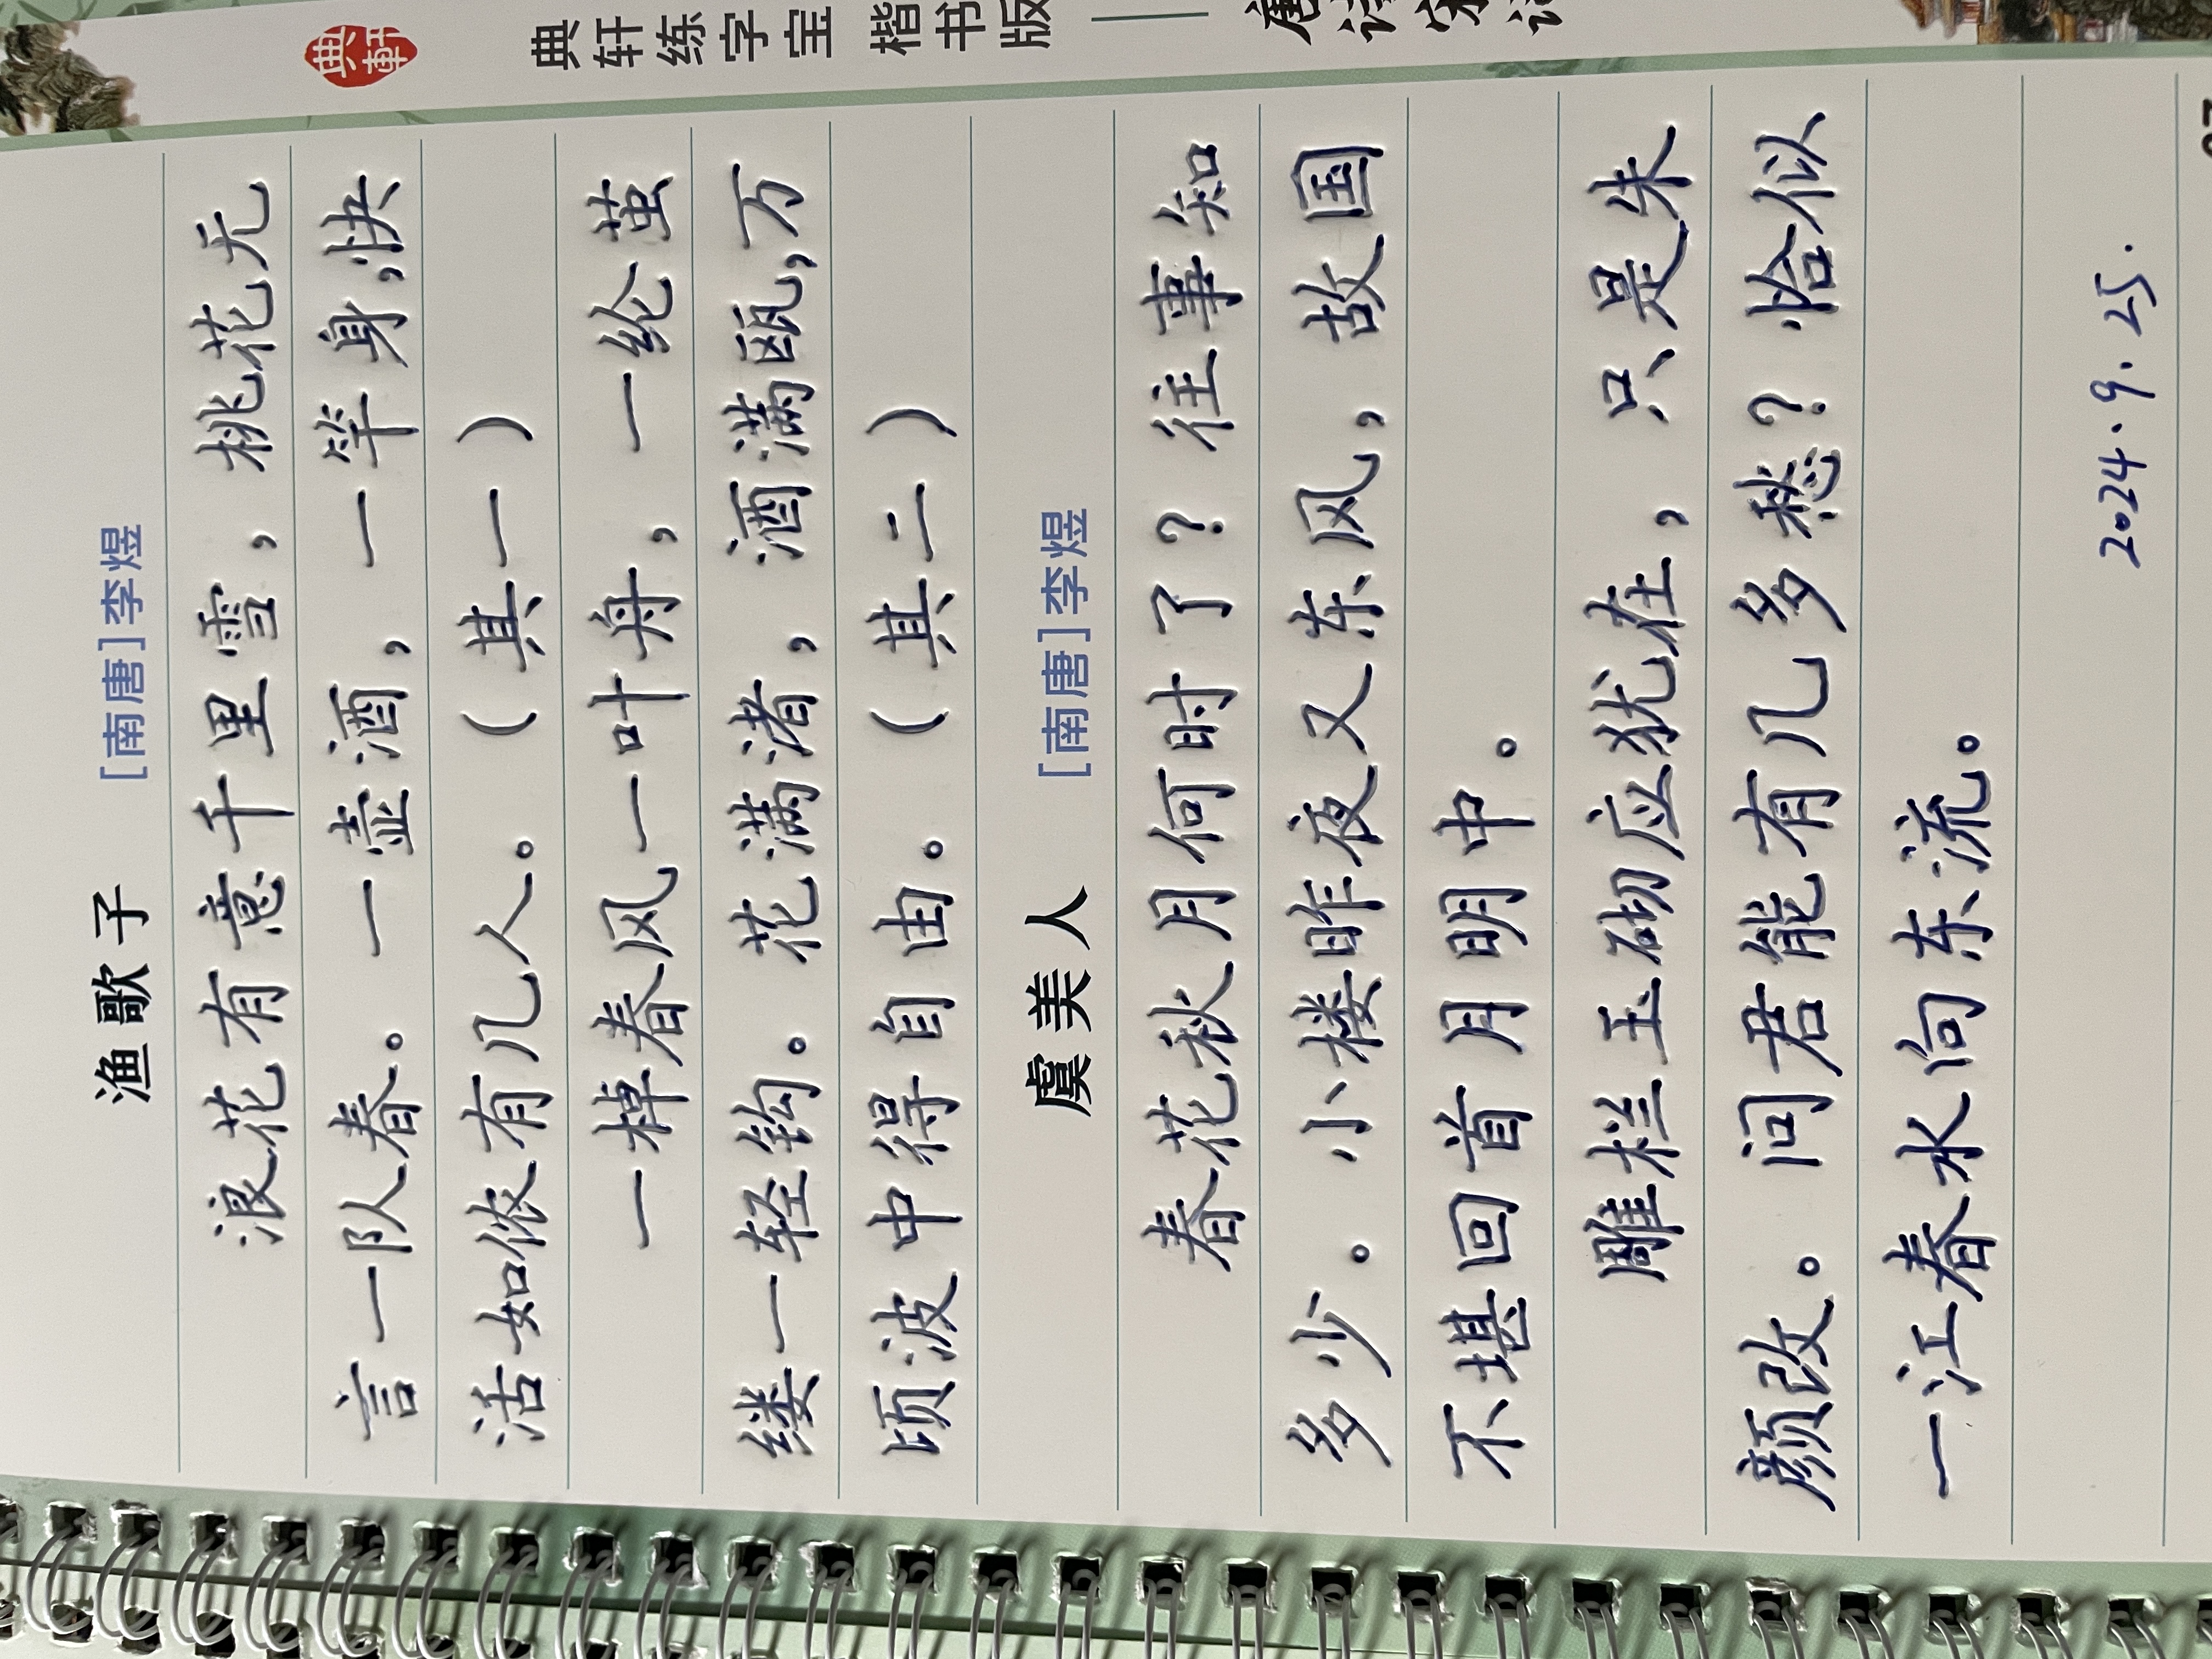 渔歌子 [南唐]李煜
浪花有意千里雪，桃花无
言一队春。一壶酒，一竿身，快
活如侬有几人。（其一）
一棹春风一叶舟，一纶茧
缕一轻钩。花满渚，酒满瓯，万
顷波中得自由。（其二）
虞美人 [南唐]李煜
春花秋月何时了？往事知
多少。小楼昨夜又东风，故国
不堪回首月明中。
雕栏玉砌应犹在，只是朱
颜改。问君能有几多愁？恰似
一江春水向东流。
2024.9.25.
典軒
典轩练字宝 楷书版
唐诗宋词